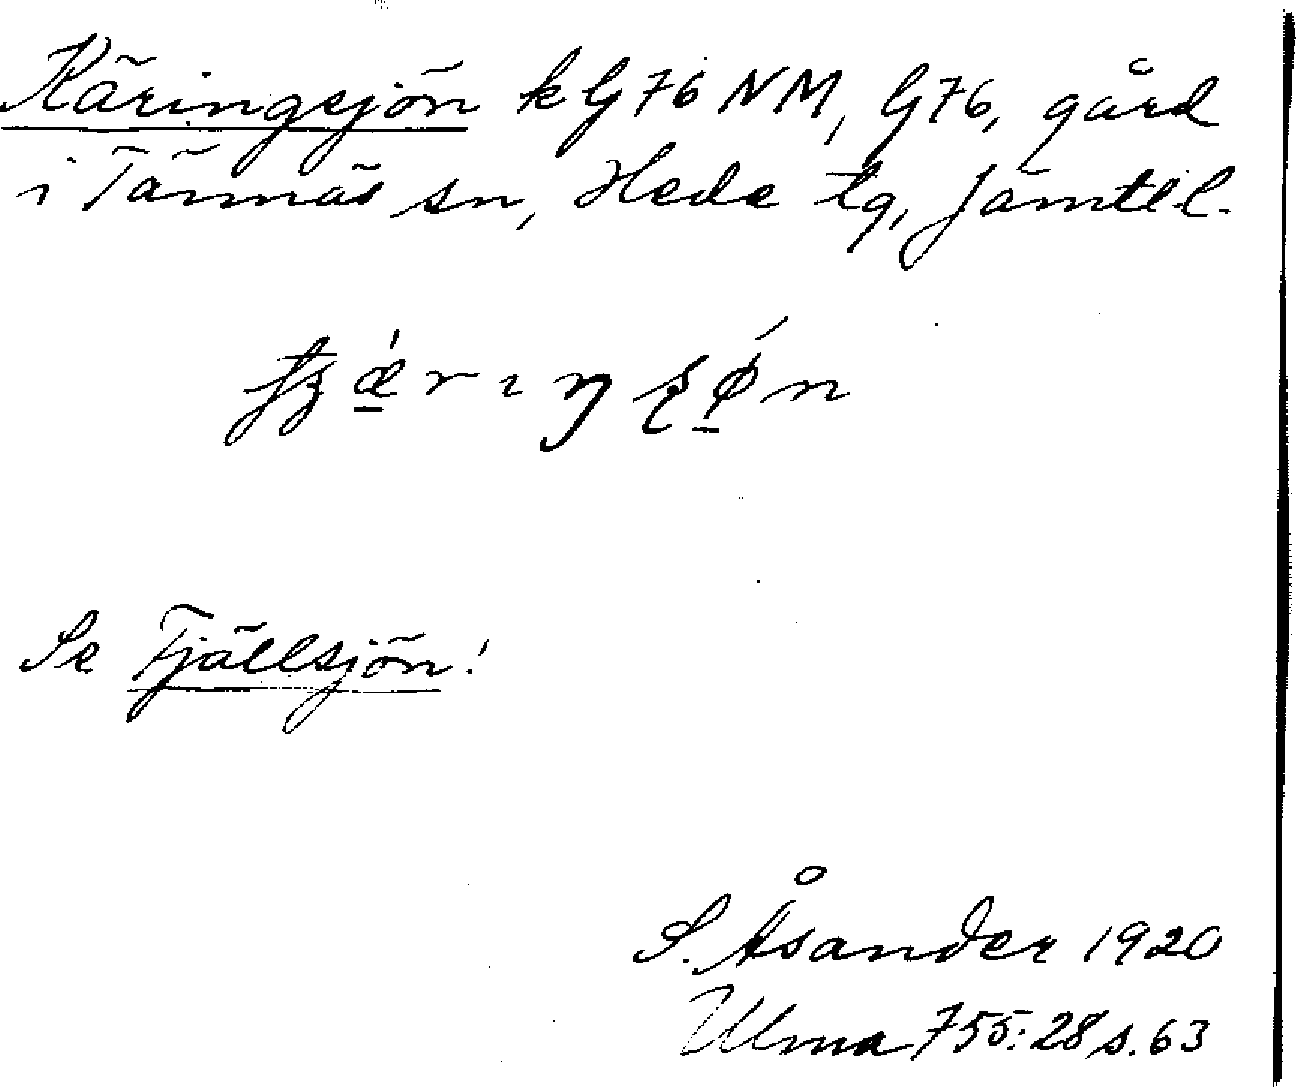 Käringsjön k G76 NM, G76, gård
i Tännäs sn, Hede tg, Jämtl l.
Se Fjällsjön!
S. Åsander 1920
Ulma 755:28 s. 63